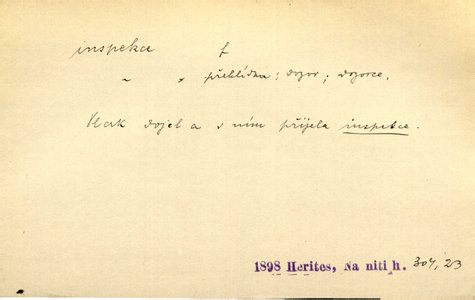 inspekce f
~ × přehlídka; dozor; dozorce,
Vlak dojel a s ním přijela inspekce.
1898 Herites, Na niti h. 304, 23